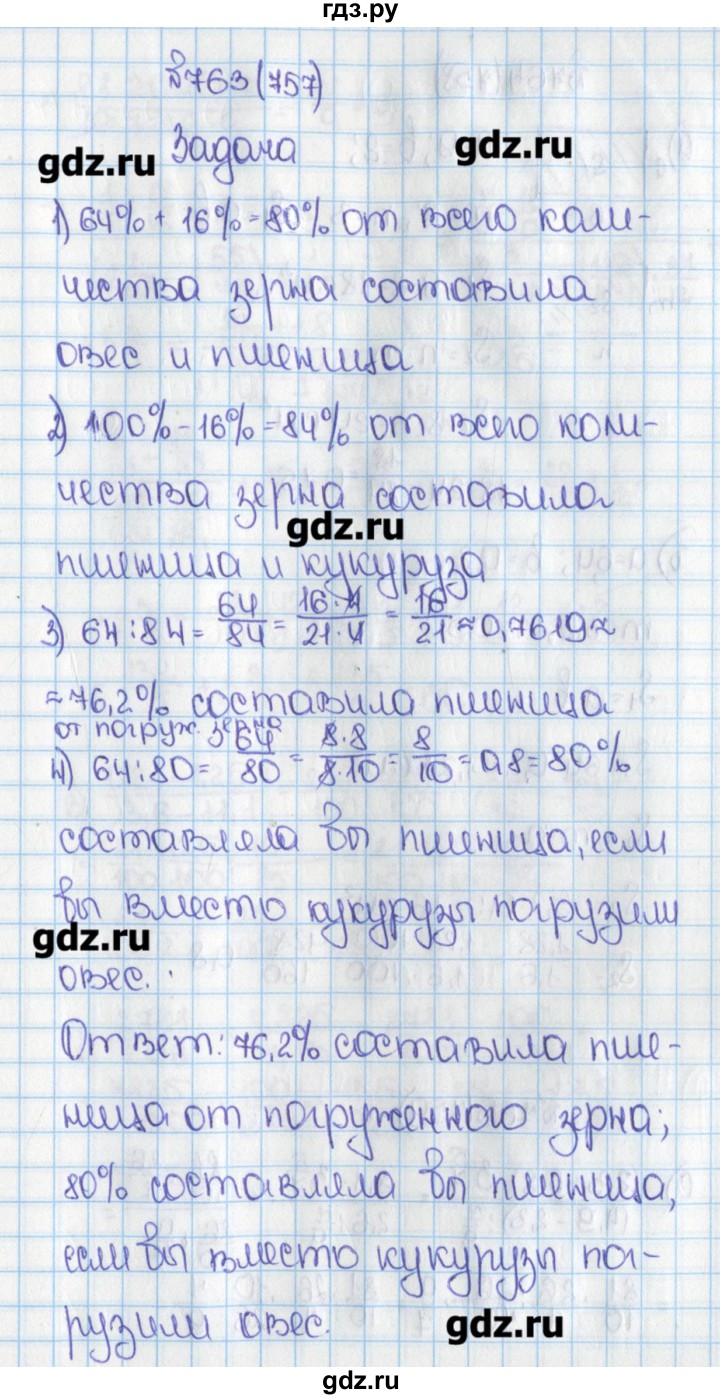 гдз.ру
№763(757)
Задача
gdz.ru
gdz.ru
1) 64% + 16% = 80% от всего коли-
чества зерна составила
овес и пшеница
2) 100% - 16% = 84% от всего коли-
чества зерна составила
gdz.ru
пшеница и кукуруза
3) 64 : 84 = 64/84 = 16·4/21·4 = 16/21 ≈ 0,7619 ≈
≈ 76,2% составила пшеница
от погруж. зерна
4) 64 : 80 = 64/80 = 8·8/8·10 = 8/10 = 0,8 = 80%
составляла бы пшеница, если
бы вместо кукурузы погрузили
gdz.ru
овес.
Ответ: 76,2% составила пше-
ница от погруженного зерна;
80% составляла бы пшеница,
если бы вместо кукурузы пог-
рузили овес.
gdz.ru
gdz.ru